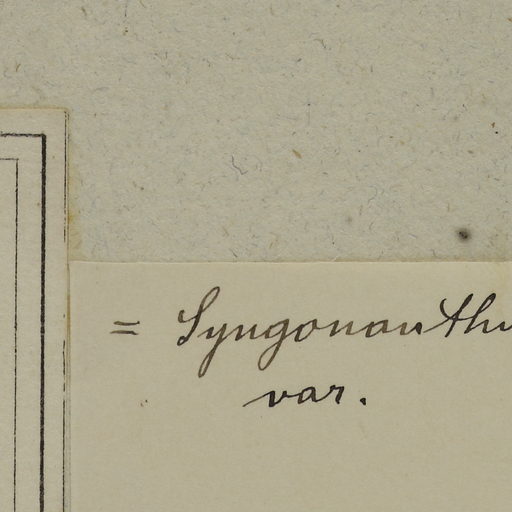 = Syngonanthu
var.